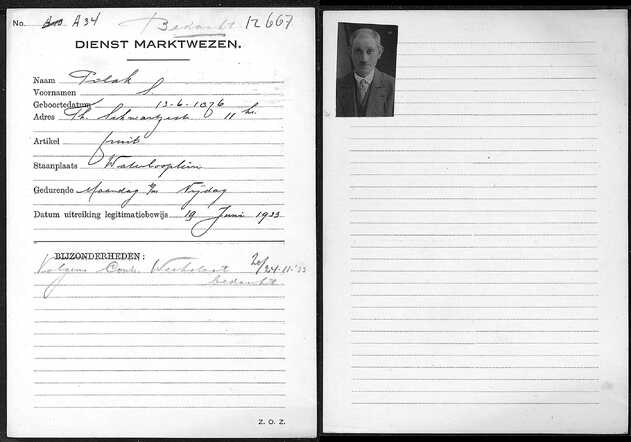 No. A34 Bedankt 12667
DIENST MARKTWEZEN.
Naam Polak
Voornamen S.
Geboortedatum 13-6-1876
Adres Th. Schwartzestr 11 hs.
Artikel fruit
Staanplaats Waterlooplein
Gedurende Maandag t/m Vrijdag
Datum uitreiking legitimatiebewijs 19 Juni 1933
BIJZONDERHEDEN:
Volgens Contr. 24-11-'33
bedankt.
Z. O. Z.